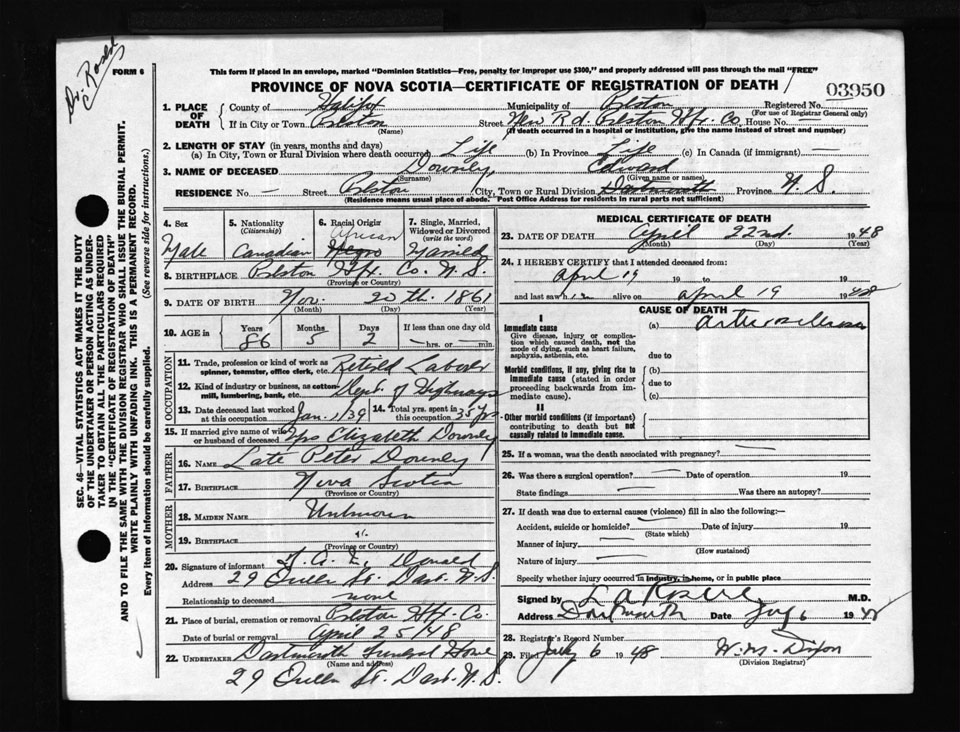 Dr. Rosen
FORM 6
This form if placed in an envelope, marked "Dominion Statistics—Free, penalty for improper use $300," and properly addressed will pass through the mail "FREE"
PROVINCE OF NOVA SCOTIA—CERTIFICATE OF REGISTRATION OF DEATH
03950
1. PLACE OF DEATH
County of Halifax Municipality of Preston Registered No.
(For use of Registrar General only)
If in City or Town Preston Street New Rd. Preston Hfx. Co. House No. —
(Name) (If death occurred in a hospital or institution, give the name instead of street and number)
2. LENGTH OF STAY (in years, months and days)
(a) In City, Town or Rural Division where death occurred Life (b) In Province Life (c) In Canada (if immigrant) —
3. NAME OF DECEASED Downey, Edward
(Surname) (Given name or names)
RESIDENCE No. — Street Preston City, Town or Rural Division Dartmouth Province N. S.
(Residence means usual place of abode. Post Office Address for residents in rural parts not sufficient)
4. Sex
Male
5. Nationality
(Citizenship)
Canadian
6. Racial Origin
African
Negro
7. Single, Married, Widowed or Divorced
(write the word)
Married
8. BIRTHPLACE Preston Hfx. Co. N. S.
(Province or Country)
9. DATE OF BIRTH Nov. 20th. 1861
(Month) (Day) (Year)
10. AGE in Years Months Days If less than one day old
86 5 2 — hrs. or — min.
OCCUPATION
11. Trade, profession or kind of work as spinner, teamster, office clerk, etc. Retired Laborer
12. Kind of industry or business, as cotton-mill, lumbering, bank, etc. Dept. of Highways
13. Date deceased last worked at this occupation Jan. 1/39 14. Total yrs. spent in this occupation 35 yrs
15. If married give name of wife or husband of deceased Mrs Elizabeth Downey
FATHER
16. NAME Late Peter Downey
17. BIRTHPLACE Nova Scotia
(Province or Country)
MOTHER
18. MAIDEN NAME Unknown
19. BIRTHPLACE "
(Province or Country)
20. Signature of informant Donald
Address 29 Queen St. Dart. N. S.
Relationship to deceased none
21. Place of burial, cremation or removal Preston Hfx. Co.
Date of burial or removal April 25/48
22. UNDERTAKER Dartmouth Funeral Home
(Name and address)
29 Queen St. Dart. N. S.
MEDICAL CERTIFICATE OF DEATH
23. DATE OF DEATH April 22nd. 1948
(Month) (Day) (Year)
24. I HEREBY CERTIFY that I attended deceased from:
April 19 19 to 19
and last saw him alive on April 19 1948
CAUSE OF DEATH
I
Immediate cause
Give disease, injury or complication which caused death, not the mode of dying, such as heart failure, asphyxia, asthenia, etc.
(a)
due to
Morbid conditions, if any, giving rise to immediate cause (stated in order proceeding backwards from immediate cause).
(b)
due to
(c)
II
Other morbid conditions (if important) contributing to death but not causally related to immediate cause.
25. If a woman, was the death associated with pregnancy? —
26. Was there a surgical operation? — Date of operation 19
State findings — Was there an autopsy?
27. If death was due to external causes (violence) fill in also the following:—
Accident, suicide or homicide? Date of injury 19
(State which)
Manner of injury —
(How sustained)
Nature of injury —
Specify whether injury occurred in industry, in home, or in public place
Signed by M.D.
Address Dartmouth Date July 6 1948
28. Registrar's Record Number
29. Filed July 6 1948 W. M. Dixon
(Division Registrar)
SEC. 46—VITAL STATISTICS ACT MAKES IT THE DUTY
OF THE UNDERTAKER OR PERSON ACTING AS UNDER-
TAKER TO OBTAIN ALL THE PARTICULARS REQUIRED
IN THE "CERTIFICATE OF REGISTRATION OF DEATH"
AND TO FILE THE SAME WITH THE DIVISION REGISTRAR WHO SHALL ISSUE THE BURIAL PERMIT.
WRITE PLAINLY WITH UNFADING INK. THIS IS A PERMANENT RECORD.
Every item of information should be carefully supplied. (See reverse side for instructions.)